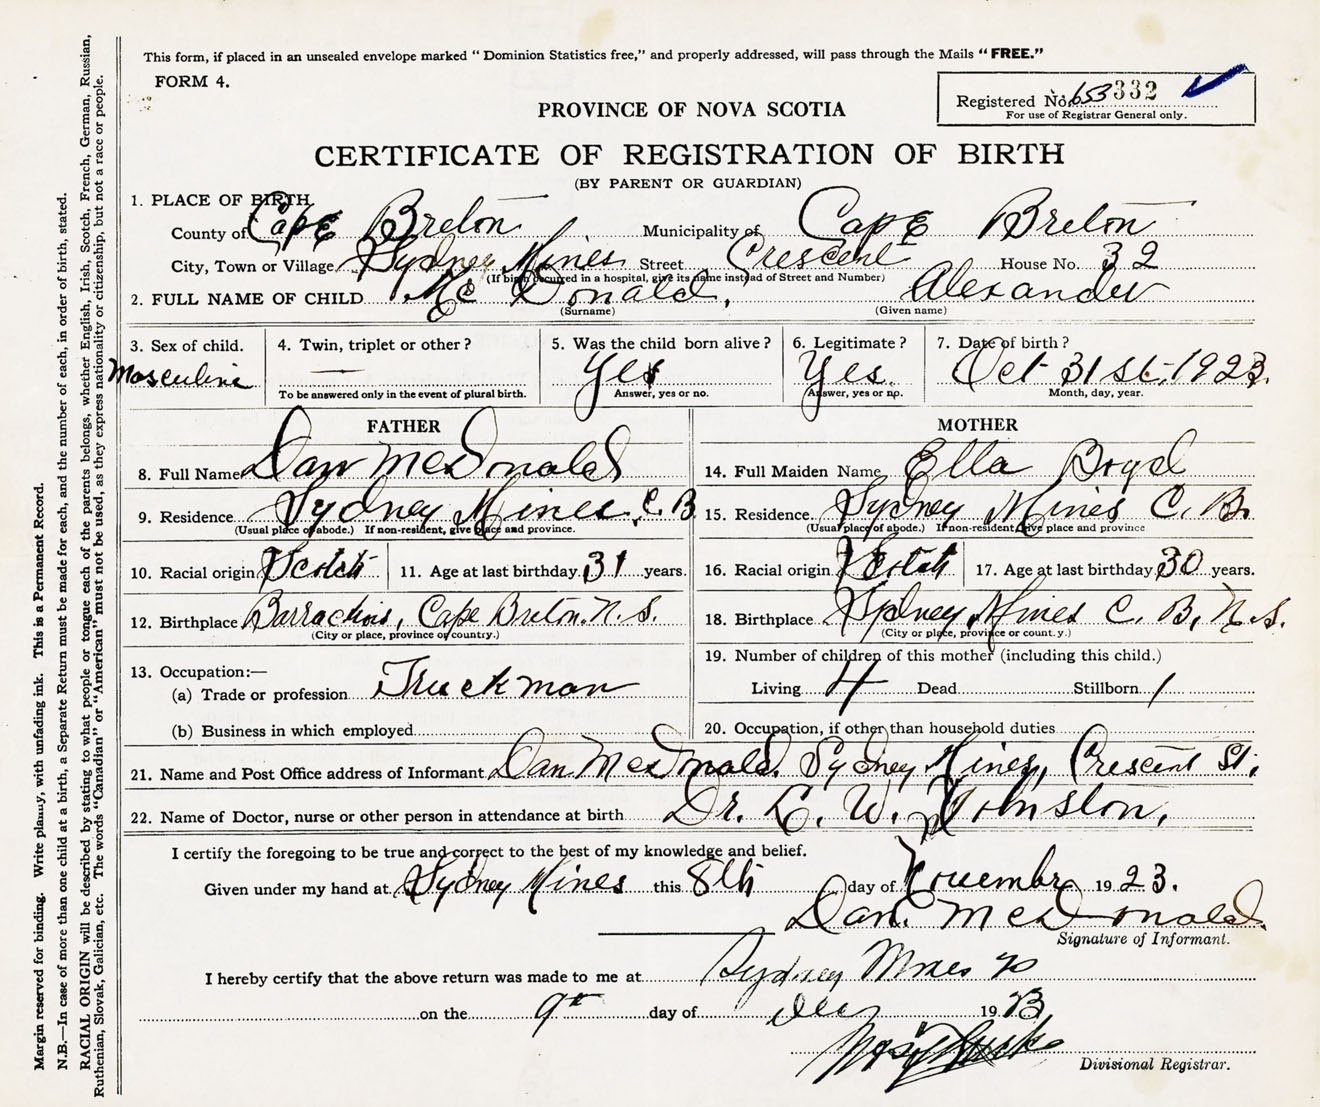 This form, if placed in an unsealed envelope marked "Dominion Statistics free," and properly addressed, will pass through the Mails "FREE."
FORM 4.
Registered No. 653332
For use of Registrar General only.
PROVINCE OF NOVA SCOTIA
CERTIFICATE OF REGISTRATION OF BIRTH
(BY PARENT OR GUARDIAN)
1. PLACE OF BIRTH
County of Cape Breton Municipality of Cape Breton
City, Town or Village Sydney Mines Street Crescent House No. 32
(If birth occurred in a hospital, give its name instead of Street and Number)
2. FULL NAME OF CHILD Mc Donald, Alexander
(Surname) (Given name)
3. Sex of child. 4. Twin, triplet or other? 5. Was the child born alive? 6. Legitimate? 7. Date of birth?
Masculine — Yes Yes. Oct 31st. 1923.
To be answered only in the event of plural birth. Answer, yes or no. Answer, yes or no. Month, day, year.
FATHER MOTHER
8. Full Name Dan McDonald 14. Full Maiden Name Ella Boyd
9. Residence Sydney Mines, C. B 15. Residence Sydney Mines C. B.
(Usual place of abode.) If non-resident, give place and province. (Usual place of abode.) If non-resident, give place and province
10. Racial origin Scotch 11. Age at last birthday 31 years. 16. Racial origin Scotch 17. Age at last birthday 30 years.
12. Birthplace Barrachois, Cape Breton. N. S. 18. Birthplace Sydney Mines C. B, N. S.
(City or place, province or country.) (City or place, province or count.y.)
13. Occupation:— 19. Number of children of this mother (including this child.)
(a) Trade or profession Truckman Living 4 Dead Stillborn 1
(b) Business in which employed 20. Occupation, if other than household duties
21. Name and Post Office address of Informant Dan McDonald. Sydney Mines, Crescent St.
22. Name of Doctor, nurse or other person in attendance at birth Dr. L. W. Johnston.
I certify the foregoing to be true and correct to the best of my knowledge and belief.
Given under my hand at Sydney Mines this 8th day of November 1923.
Dan. McDonald.
Signature of Informant.
I hereby certify that the above return was made to me at Sydney Mines
on the 9th day of 1923
Divisional Registrar.
Margin reserved for binding. Write plainly, with unfading ink. This is a Permanent Record.
N.B.—In case of more than one child at a birth, a Separate Return must be made for each, and the number of each, in order of birth, stated.
RACIAL ORIGIN will be described by stating to what people or tongue each of the parents belongs, whether English, Irish, Scotch, French, German, Russian,
Ruthenian, Slovak, Galician, etc. The words "Canadian" or "American" must not be used, as they express nationality or citizenship, but not a race or people.